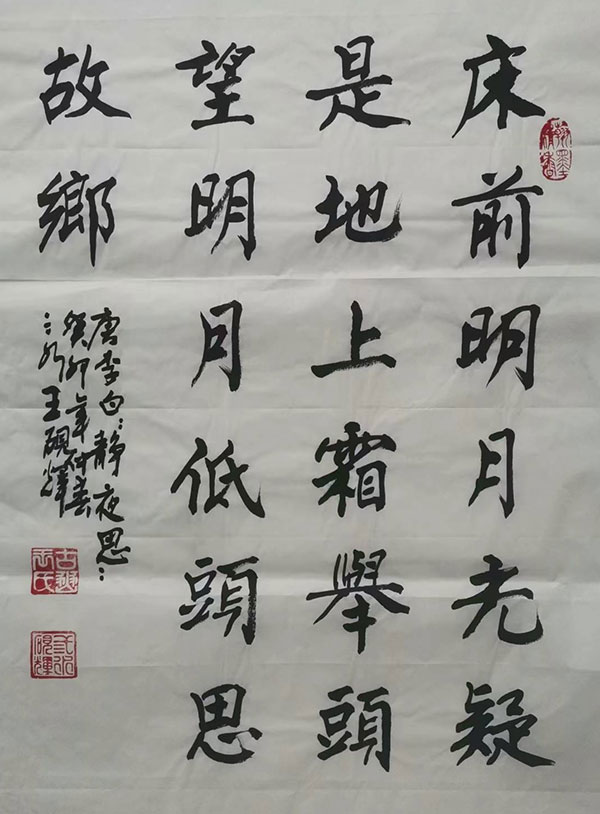 床前明月光疑
是地上霜舉頭
望明月低頭思
故鄉
唐李白：静夜思：
癸卯年仲春
王硯輝
硯輝